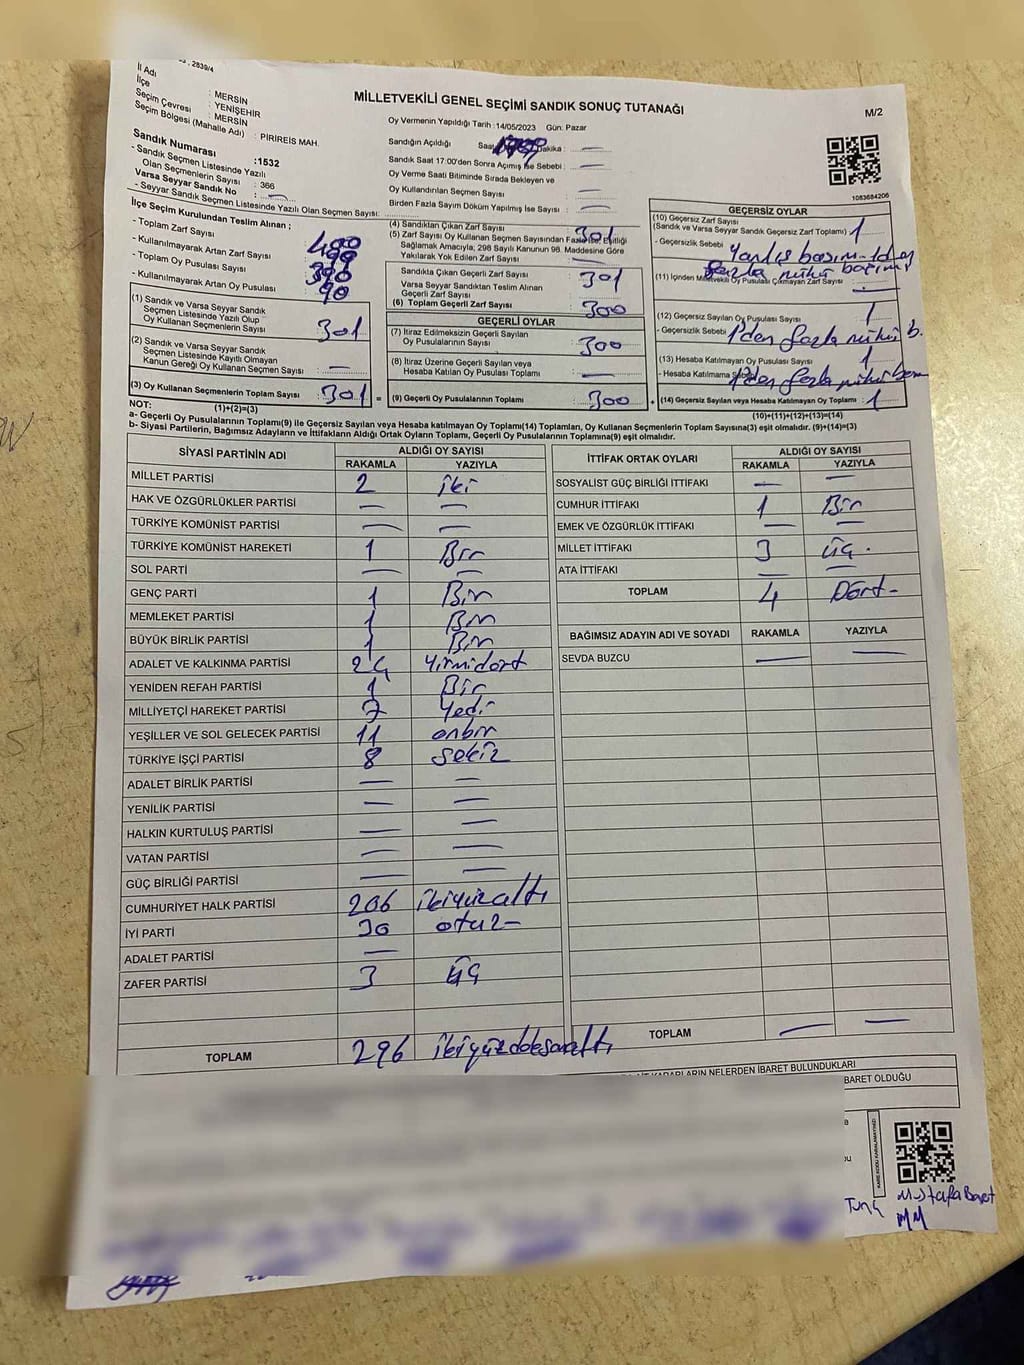 2839/4
İl Adı : MERSİN
İlçe : YENİŞEHİR
Seçim Çevresi : MERSİN
Seçim Bölgesi (Mahalle Adı) : PİRİREİS MAH.
MİLLETVEKİLİ GENEL SEÇİMİ SANDIK SONUÇ TUTANAĞI
M/2
Oy Vermenin Yapıldığı Tarih :14/05/2023 Gün: Pazar
Sandığın Açıldığı Saat Dakika : —
Sandık Saat 17:00'den Sonra Açılmış İse Sebebi : —
Oy Verme Saati Bitiminde Sırada Bekleyen ve
Oy Kullandırılan Seçmen Sayısı : —
Birden Fazla Sayım Döküm Yapılmış İse Sayısı : —
1083684206
Sandık Numarası :1532
- Sandık Seçmen Listesinde Yazılı
Olan Seçmenlerin Sayısı : 366
Varsa Seyyar Sandık No : —
- Seyyar Sandık Seçmen Listesinde Yazılı Olan Seçmen Sayısı:
İlçe Seçim Kurulundan Teslim Alınan ;
- Toplam Zarf Sayısı : 400
- Kullanılmayarak Artan Zarf Sayısı : 99
- Toplam Oy Pusulası Sayısı : 390
- Kullanılmayarak Artan Oy Pusulası : 90
(1) Sandık ve Varsa Seyyar Sandık
Seçmen Listesinde Yazılı Olup
Oy Kullanan Seçmenlerin Sayısı : 301
(2) Sandık ve Varsa Seyyar Sandık
Seçmen Listesinde Kayıtlı Olmayan
Kanun Gereği Oy Kullanan Seçmen Sayısı : —
(3) Oy Kullanan Seçmenlerin Toplam Sayısı : 301
(1)+(2)=(3)
(4) Sandıktan Çıkan Zarf Sayısı : 301
(5) Zarf Sayısı Oy Kullanan Seçmen Sayısından Fazla İse, Eşitliği
Sağlamak Amacıyla; 298 Sayılı Kanunun 98. Maddesine Göre
Yakılarak Yok Edilen Zarf Sayısı : —
Sandıkta Çıkan Geçerli Zarf Sayısı : 301
Varsa Seyyar Sandıktan Teslim Alınan
Geçerli Zarf Sayısı : —
(6) Toplam Geçerli Zarf Sayısı : 300
GEÇERLİ OYLAR
(7) İtiraz Edilmeksizin Geçerli Sayılan
Oy Pusulalarının Sayısı : 300
(8) İtiraz Üzerine Geçerli Sayılan veya
Hesaba Katılan Oy Pusulası Toplamı : —
= (9) Geçerli Oy Pusulalarının Toplamı : 300 +
GEÇERSİZ OYLAR
(10) Geçersiz Zarf Sayısı
(Sandık ve Varsa Seyyar Sandık Geçersiz Zarf Toplamı) : 1
- Geçersizlik Sebebi : Yanlış basım
fazla mührü basımı
(11) İçinden Milletvekili Oy Pusulası Çıkmayan Zarf Sayısı : —
(12) Geçersiz Sayılan Oy Pusulası Sayısı : 1
- Geçersizlik Sebebi : 1'den fazla mühür b.
(13) Hesaba Katılmayan Oy Pusulası Sayısı : 1
- Hesaba Katılmama Sebebi : 1'den fazla mühür
(14) Geçersiz Sayılan veya Hesaba Katılmayan Oy Toplamı : 1
(10)+(11)+(12)+(13)=(14)
NOT:
a- Geçerli Oy Pusulaları Toplamı(9) ile Geçersiz Sayılan veya Hesaba Katılmayan Oy Toplamı(14) Toplamları, Oy Kullanan Seçmenlerin Toplam Sayısına(3) eşit olmalıdır. (9)+(14)=(3)
b- Siyasi Partilerin, Bağımsız Adayların ve İttifakların Aldığı Ortak Oyların Toplamı, Geçerli Oy Pusulalarının Toplamına(9) eşit olmalıdır.
SİYASİ PARTİNİN ADI ALDIĞI OY SAYISI
RAKAMLA YAZIYLA
MİLLET PARTİSİ 2 iki
HAK VE ÖZGÜRLÜKLER PARTİSİ — —
TÜRKİYE KOMÜNİST PARTİSİ — —
TÜRKİYE KOMÜNİST HAREKETİ 1 Bir
SOL PARTİ — —
GENÇ PARTİ 1 Bir
MEMLEKET PARTİSİ 1 Bir
BÜYÜK BİRLİK PARTİSİ 1 Bir
ADALET VE KALKINMA PARTİSİ 24 Yirmidört
YENİDEN REFAH PARTİSİ 1 Bir
MİLLİYETÇİ HAREKET PARTİSİ 7 Yedi
YEŞİLLER VE SOL GELECEK PARTİSİ 11 onbir
TÜRKİYE İŞÇİ PARTİSİ 8 Sekiz
ADALET BİRLİK PARTİSİ — —
YENİLİK PARTİSİ — —
HALKIN KURTULUŞ PARTİSİ — —
VATAN PARTİSİ — —
GÜÇ BİRLİĞİ PARTİSİ — —
CUMHURİYET HALK PARTİSİ 206 ikiyüzaltı
İYİ PARTİ 30 otuz-
ADALET PARTİSİ —
ZAFER PARTİSİ 3 üç
TOPLAM 296 ikiyüzdoksanaltı
İTTİFAK ORTAK OYLARI ALDIĞI OY SAYISI
RAKAMLA YAZIYLA
SOSYALİST GÜÇ BİRLİĞİ İTTİFAKI — —
CUMHUR İTTİFAKI 1 Bir
EMEK VE ÖZGÜRLÜK İTTİFAKI — —
MİLLET İTTİFAKI 3 üç.
ATA İTTİFAKI — —
TOPLAM 4 Dört-
BAĞIMSIZ ADAYIN ADI VE SOYADI RAKAMLA YAZIYLA
SEVDA BUZCU — —
TOPLAM — —
KARARLARIN NELERDEN İBARET BULUNDUKLARI
BARET OLDUĞU
Tunç
Mustafa